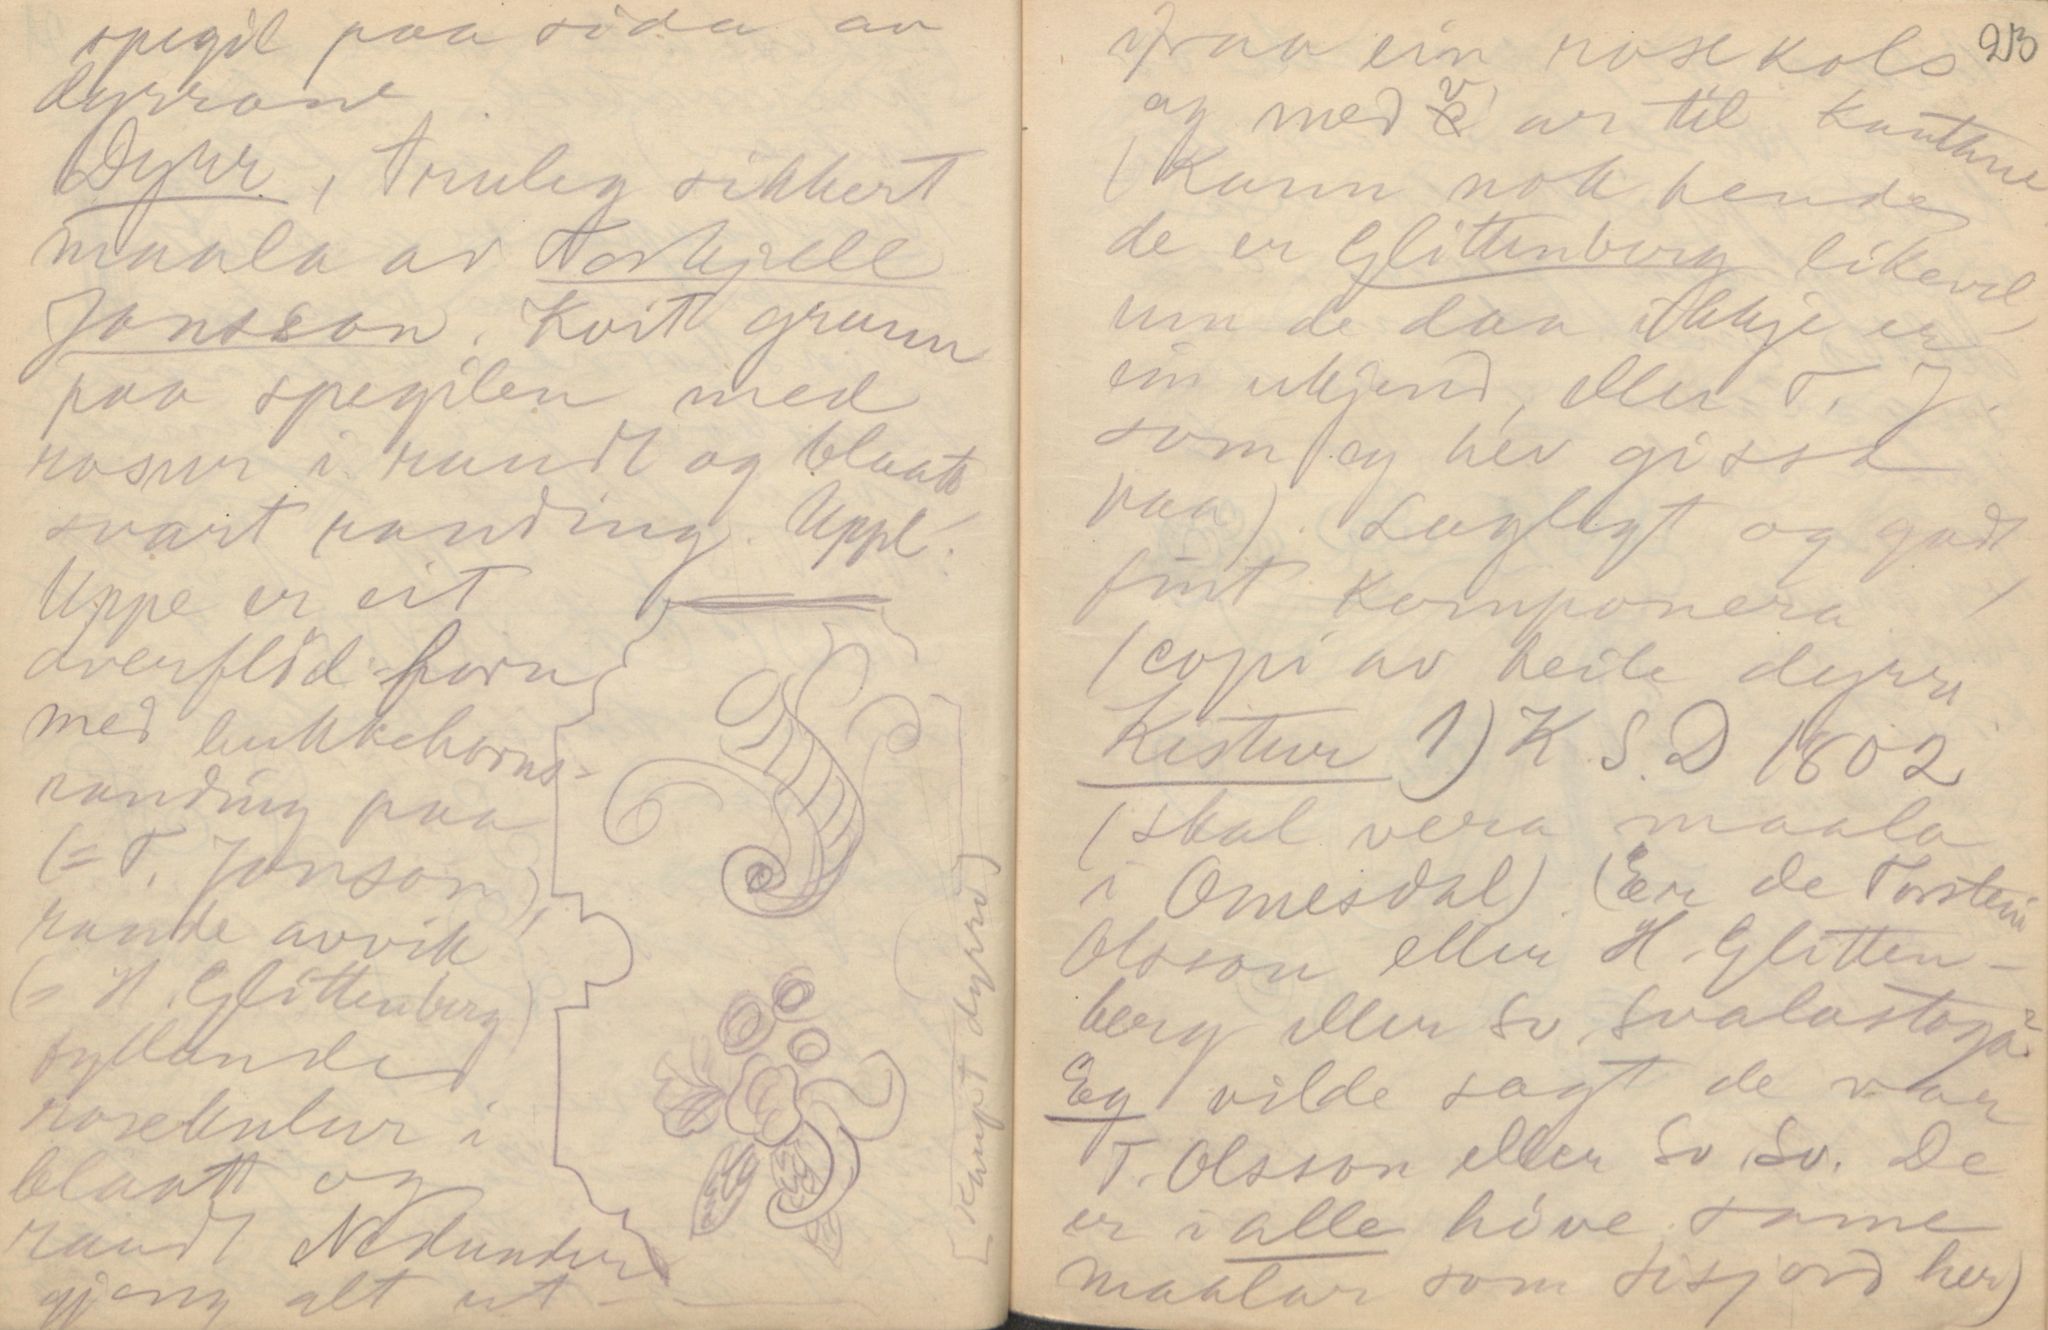 spegil paa sida av
dyrrane
Dyrr, truleg sikkert
maala av Torkjell
Jonsson. Kvit grunn
paa spegilen med
rosur i raudt og blaatt
svart randing. Uppe
Uppe er eit
overflod-horn
med bukkehorns-
randing paa
(= T. Jonson),
rande avvik
(= H. Glittenberg)
fyllande
rosebukur i
blaatt og
raudt Nedundur
gjeng alt ut
(Kaupt dyrrö)
213
ifraa ein rosekols
og med v ar til kantane
(Kann nok henda
de er Glittenberg likevel
um de daa ikkje er
ein ukjend, eller T. J.
som eg hev gissa
paa). Lagligt og godt
fint komponera
(copi av heile dyrri
Kistur 1) K. S. D 1802
(skal vera maala
i Omesdal) (Er de Torstein
Olsson eller H. Glitten-
berg eller Sv. Svalastoga?
Eg vilde sagt de var
T. Olsson eller Sv. Sv. De
er i alle höve same
maalar som Sisjord her)